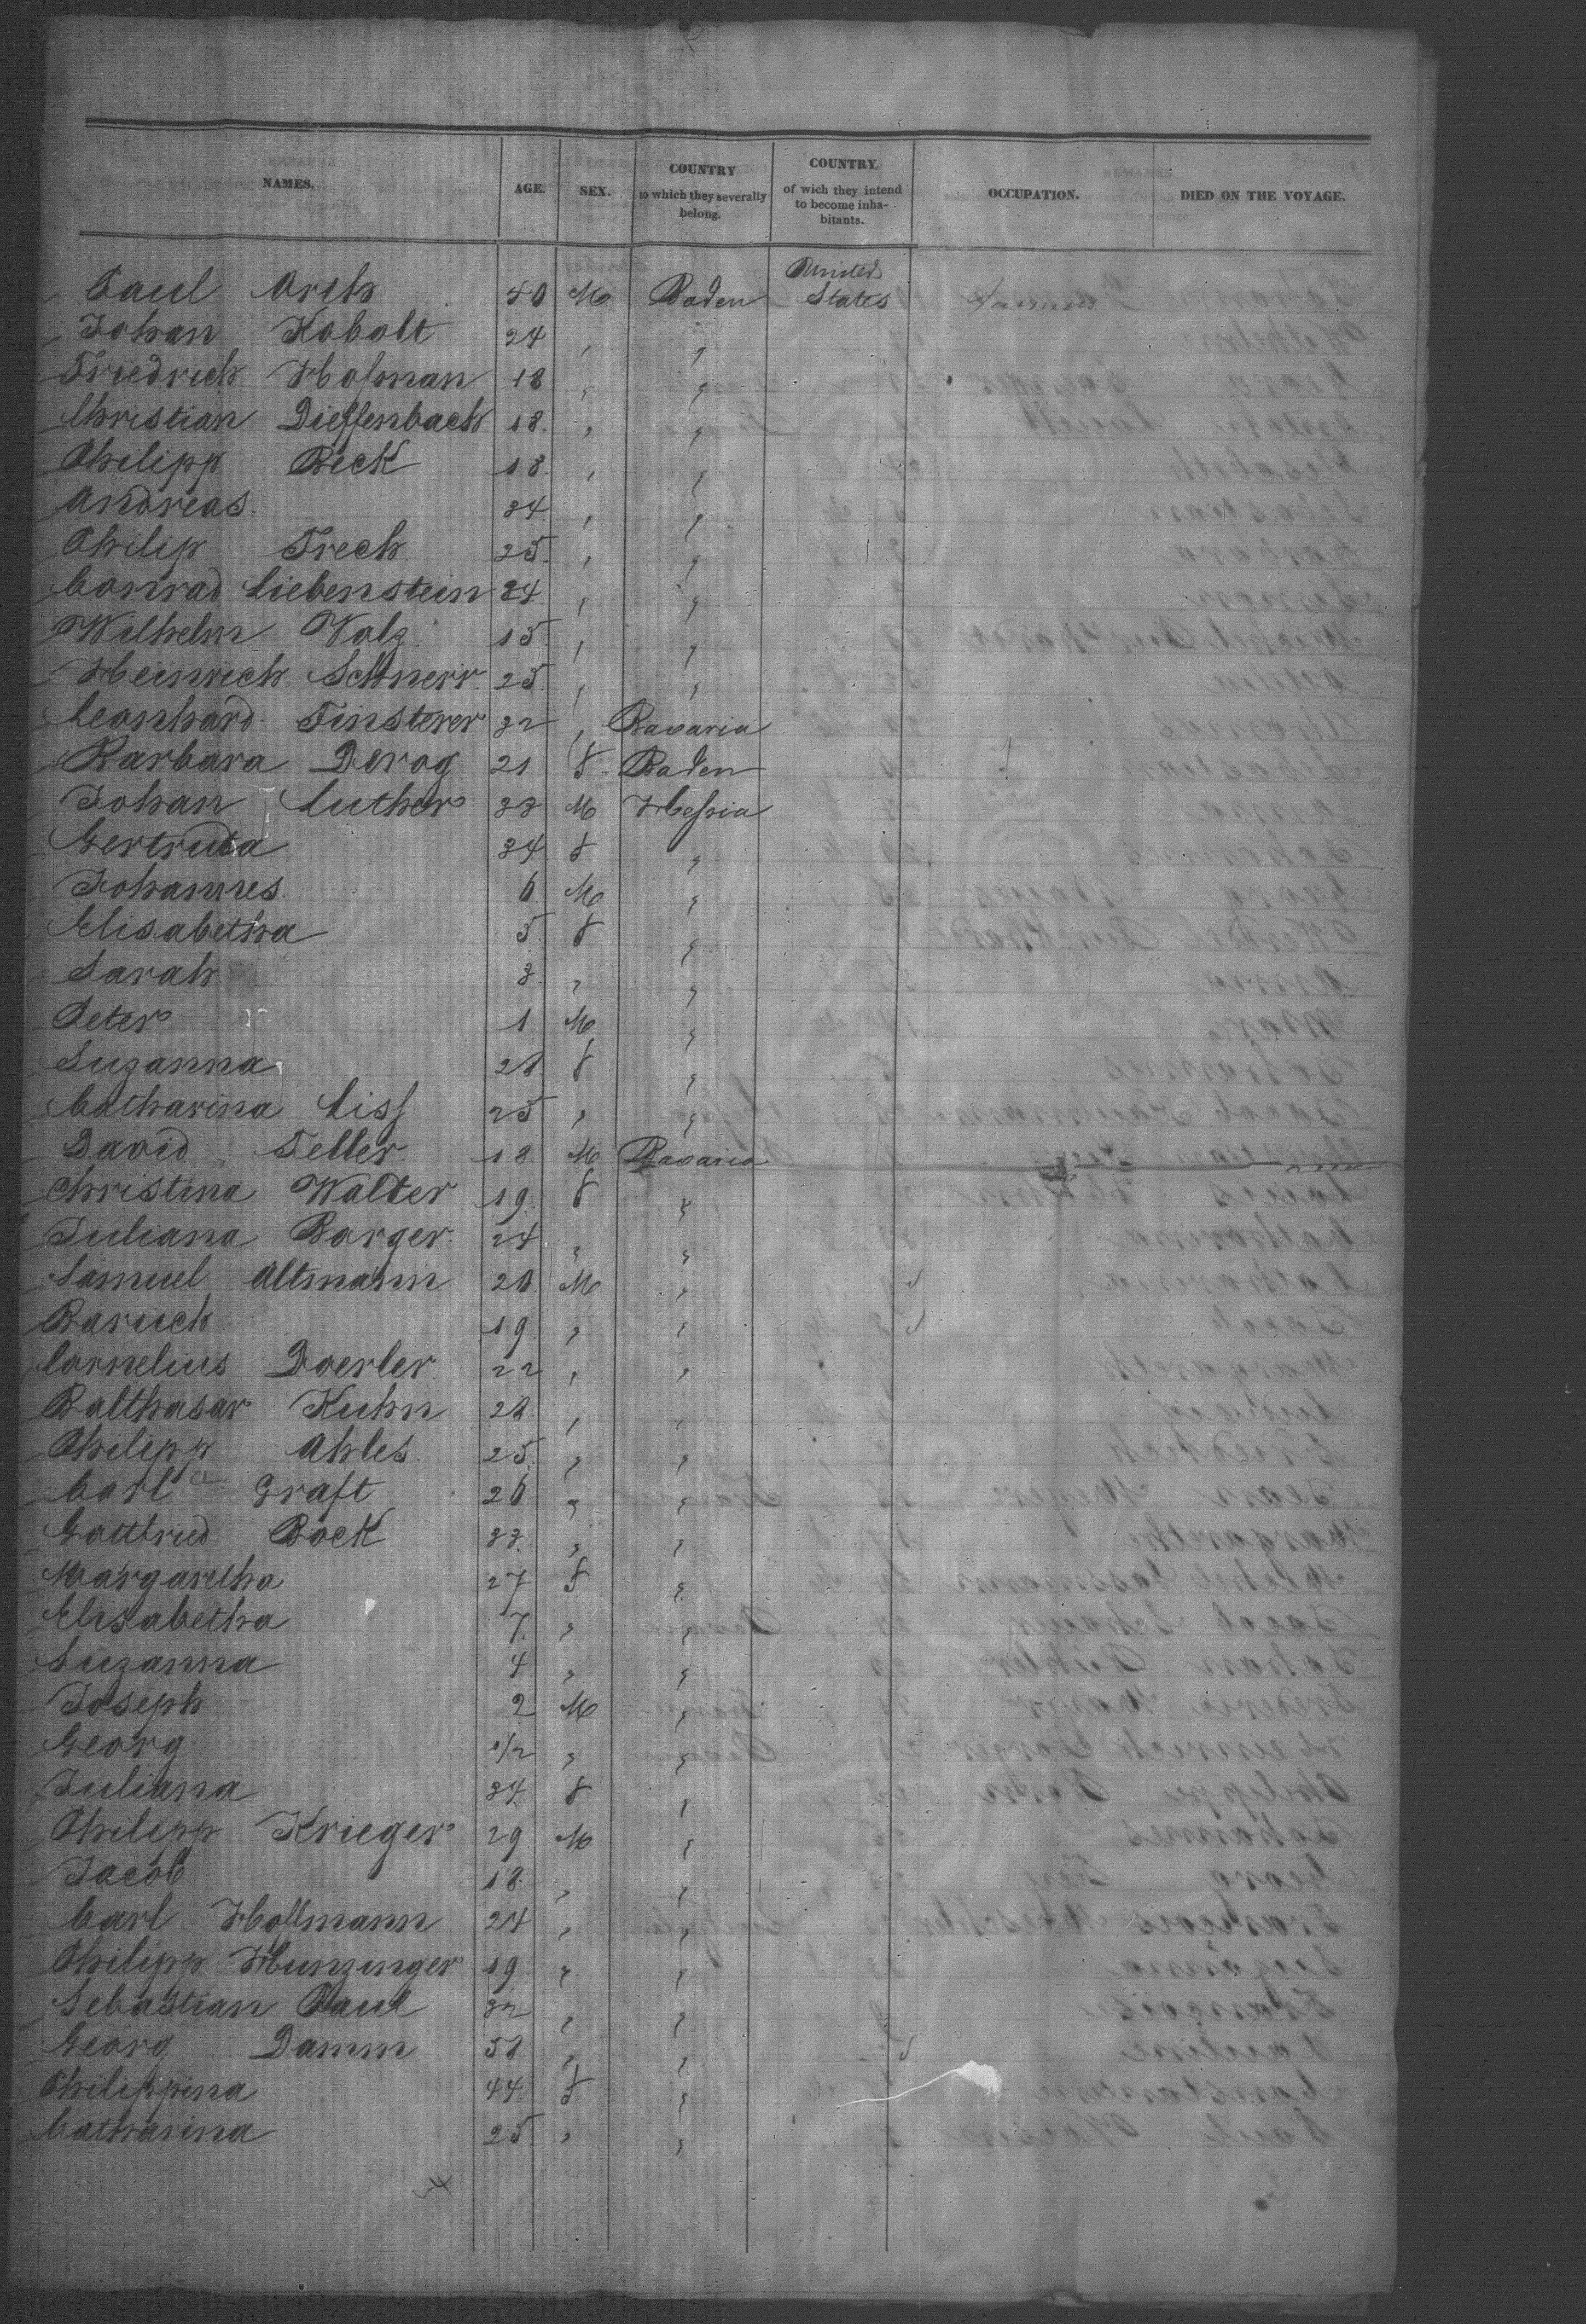 NAMES. AGE. SEX. COUNTRY to which they severally belong. COUNTRY of wich they intend to become inhabitants. OCCUPATION. DIED ON THE VOYAGE.
Paul Arth 40 M Baden United States Farmer
Johan Kobolt 24 " "
Friedrich Hofsman 18 " "
Christian Dieffenbach 18 " "
Philipp Beck 18 " "
Andreas 34 " "
Philip Frech 25 " "
Conrad Liebenstein 24 " "
Wilhelm Volz 15 " "
Heinrich Schnerr 25 " "
Leonhard Finsterer 32 " Bavaria
Barbara Derog 21 F Baden
Johan Luther 33 M Hessia
Gertruda 34 F "
Johannes 6 M "
Elisabetha 5 F "
Sarah 3 " "
Peter 1 M "
Suzanna F "
Catharina Liss 25 " "
David Feller 18 M Bavaria
Christina Walter 19 F "
Juliana Barger 24 " "
Samuel Altmann 20 M "
Baruch 19 " "
Cornelius Doerler 22 " "
Balthasar Kuhn 28 " "
Philipp Ahles 25 " "
Carl Graft 26 " "
Gottfried Bock 33 " "
Margaretha 27 F "
Elisabetha 7 " "
Suzanna 4 " "
Joseph 2 M "
Georg 1/2 " "
Juliana 34 F "
Philipp Krieger 29 M "
Jacob 18 " "
Carl Hoffmann 24 " "
Philipp Hunzinger 19 " "
Sebastian Paul 32 " "
Georg Damm 58 " "
Philippina 44 F "
Catharina 25 " "